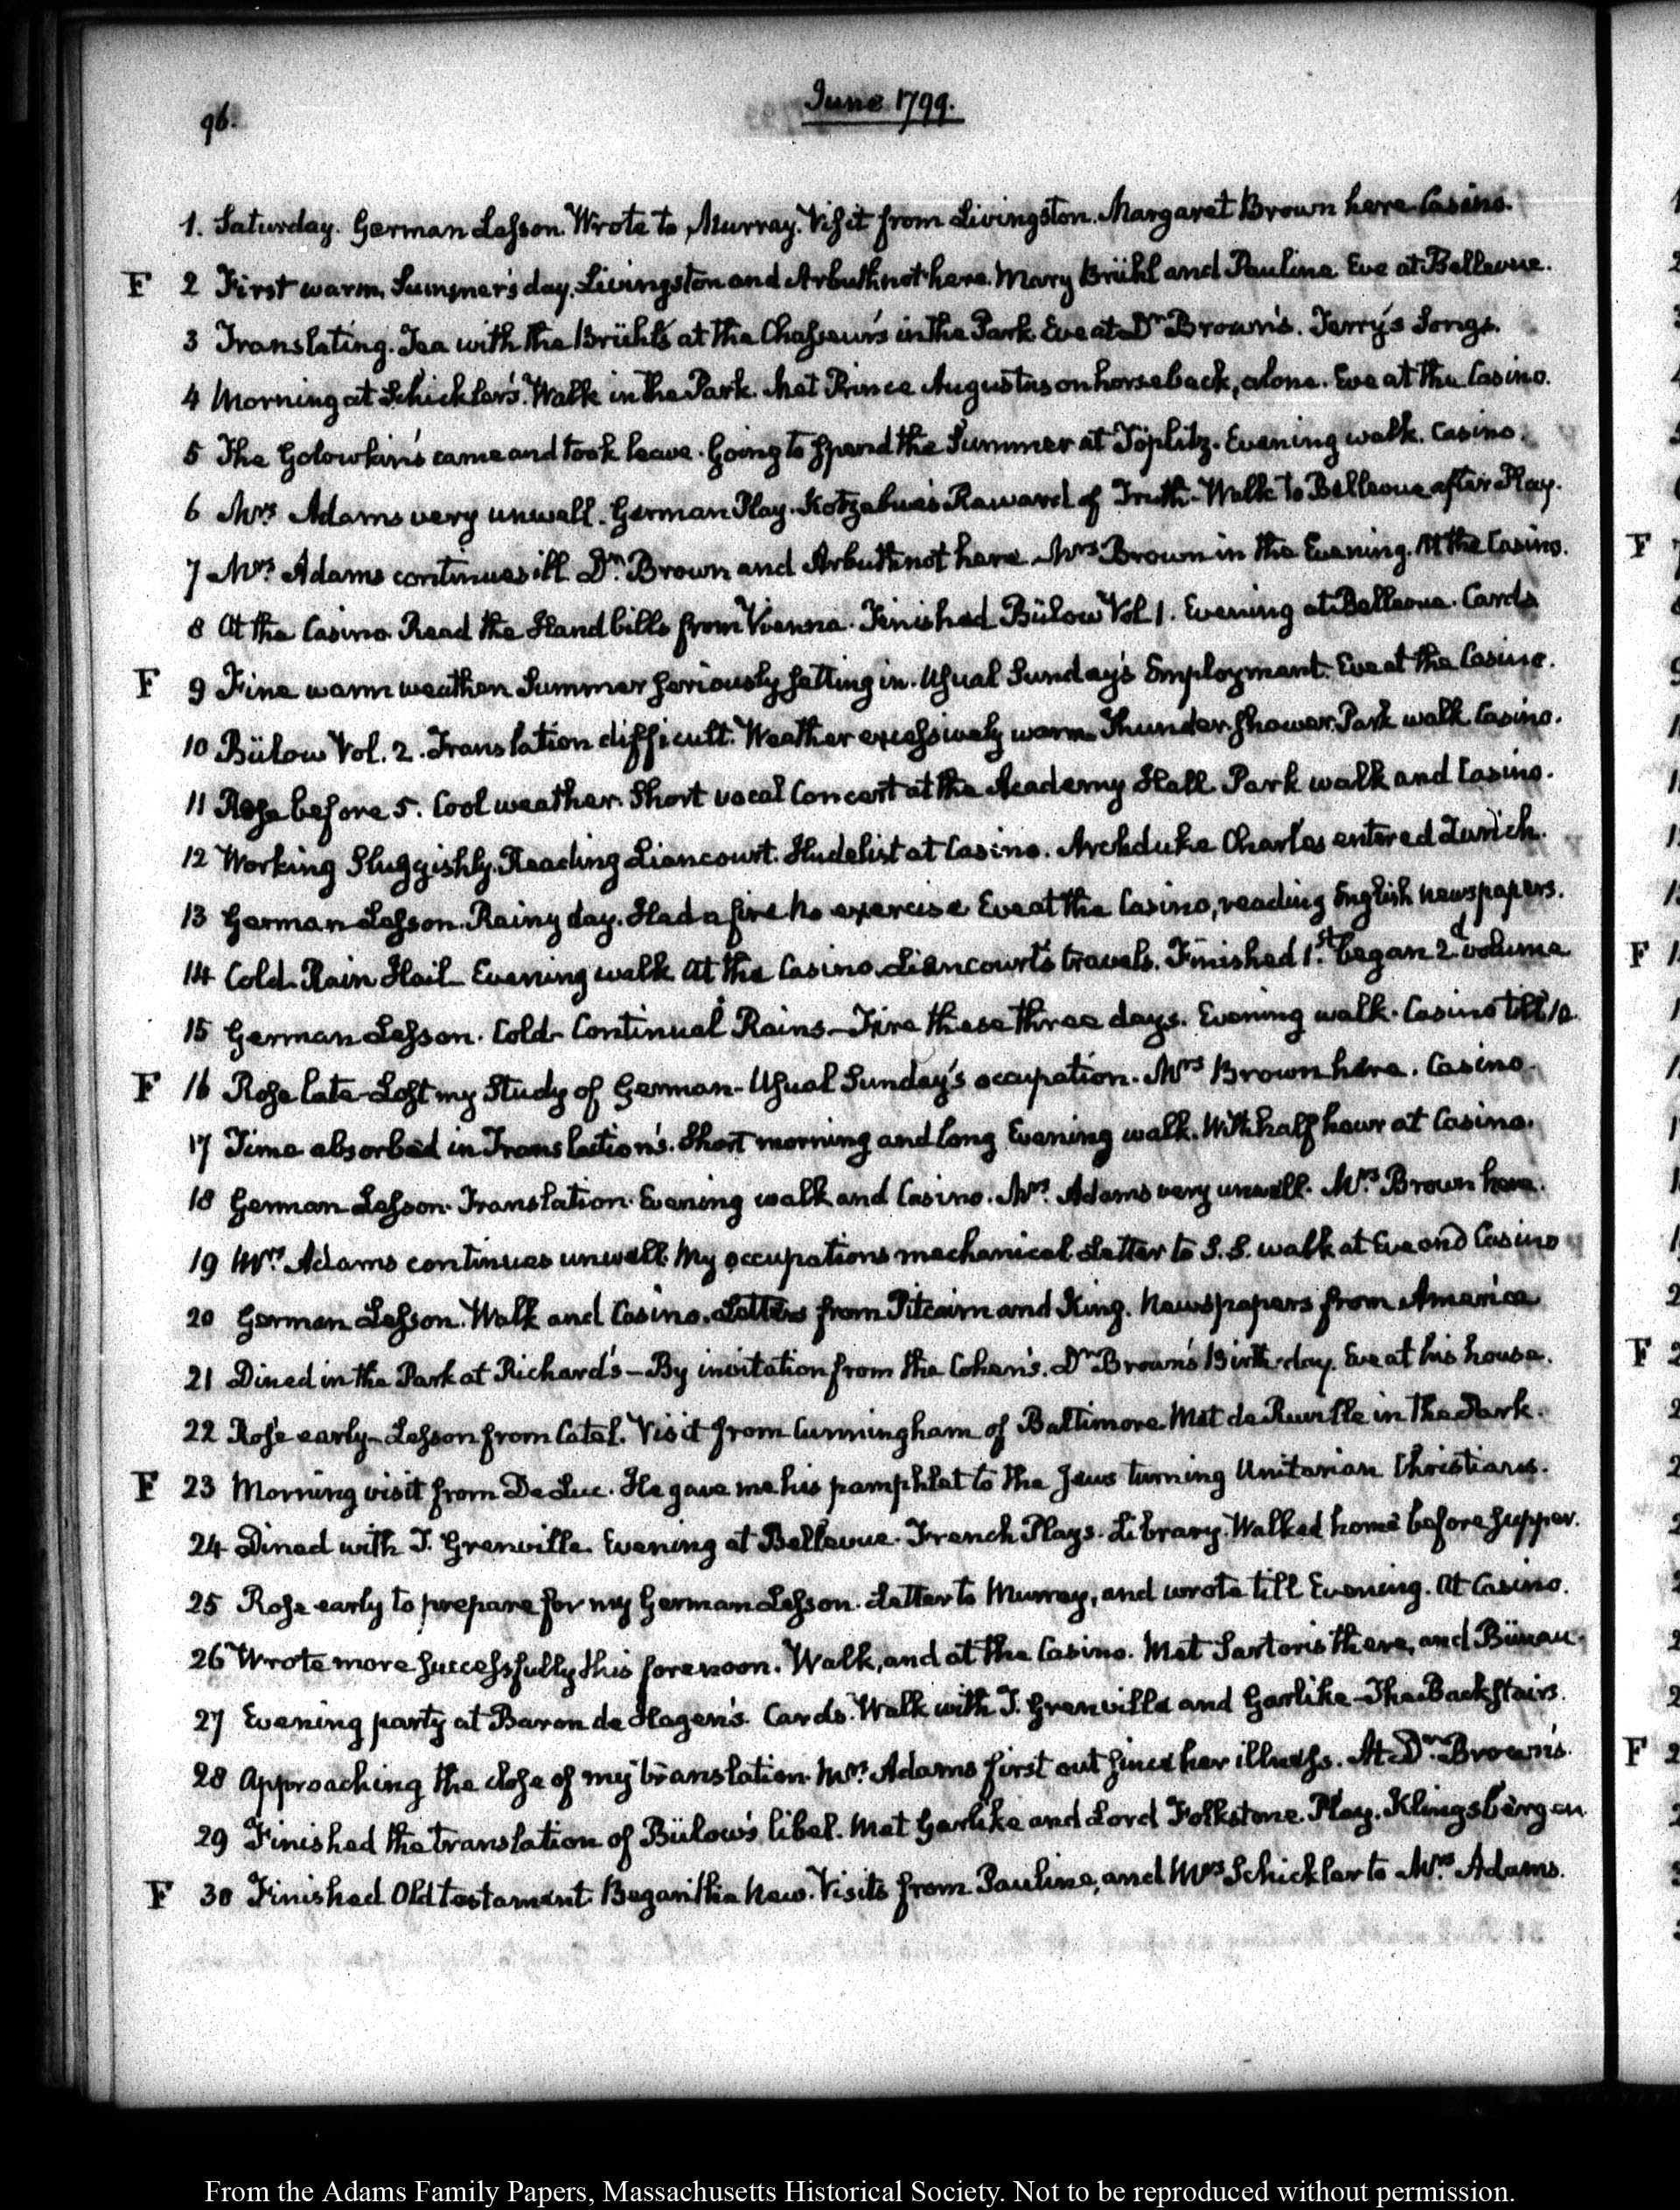 96.
June 1799.
1. Saturday. German Lesson. Wrote to Murray. Visit from Livingston. Margaret Brown here. Casino.
F 2 First warm, Summer's day. Livingston and Arbuthnot here. Mary Brühl and Pauline. Eve at Bellevue.
3 Translating. Tea with the Brühl's at the Chasseur's in the Park. Eve at Dr. Brown's. Terry's Songs.
4 Morning at Schickler's. Walk in the Park. Met Prince Augustus on horseback, alone. Eve at the Casino.
5 The Golowkin's came and took leave. Going to spend the Summer at Töplitz. Evening walk. Casino.
6 Mrs. Adams very unwell. German Play. Kotzebue's Reward of Truth. Walk to Bellevue after Play.
7 Mrs. Adams continues ill. Dr. Brown and Arbuthnot here. Mrs. Brown in the Evening. At the Casino.
8 At the Casino. Read the Hand bills from Vienna. Finished Bülow Vol 1. Evening at Bellevue. Cards
F 9 Fine warm weather. Summer seriously setting in. Usual Sunday's Employment. Eve at the Casino.
10 Bülow Vol. 2. Translation difficult. Weather excessively warm. Thunder-shower. Park walk. Casino.
11 Rose before 5. Cool weather. Short vocal Concert at the Academy Hall. Park walk and Casino.
12 Working Sluggishly. Reading Liancourt. Hudelist at Casino. Archduke Charles entered Zurich.
13 German Lesson. Rainy day. Had a fire. No exercise. Eve at the Casino, reading English newspapers.
14 Cold. Rain. Hail. Evening walk. At the Casino. Liancourt's travels. Finished 1st. began 2d. volume
15 German Lesson. Cold. Continual Rains. Fire these three days. Evening walk. Casino till 10.
F 16 Rose late. Lost my Study of German. Usual Sunday's occupation. Mrs Brown here. Casino.
17 Time absorbed in Translations. Short morning and long Evening walk. With half hour at Casino.
18 German Lesson. Translation. Evening walk and Casino. Mrs. Adams very unwell. Mrs. Brown here.
19 Mrs. Adams continues unwell. My occupations mechanical. Letter to S.S. walk at Eve and Casino
20 German Lesson. Walk and Casino. Letters from Pitcairn and King. Newspapers from America
21 Dined in the Park at Richard's—By invitation from the Cohen's. Dr Brown's Birth-day. Eve at his house.
22 Rose early. Lesson from Catel. Visit from Cunningham of Baltimore. Met de Ruville in the Park.
F 23 Morning visit from De Luc. He gave me his pamphlet to the Jews turning Unitarian Christians.
24 Dined with T. Grenville. Evening at Bellevue. French Plays. Library. Walked home before supper.
25 Rose early to prepare for my German Lesson. Letter to Murray, and wrote till Evening. At Casino.
26 Wrote more successfully this forenoon. Walk, and at the Casino. Met Sartoris there, and Bünau.
27 Evening party at Baron de Hagen's. Cards. Walk with T. Grenville and Garlike—The Back Stairs.
28 Approaching the close of my translation. Mrs. Adams first out since her illness. At Dr. Brown's.
29 Finished the translation of Bülow's libel. Met Garlike and Lord Folkstone. Play. Klingsbergen
F 30 Finished Old testament. Began the New. Visits from Pauline, and Mrs Schickler to Mrs. Adams.
From the Adams Family Papers, Massachusetts Historical Society. Not to be reproduced without permission.